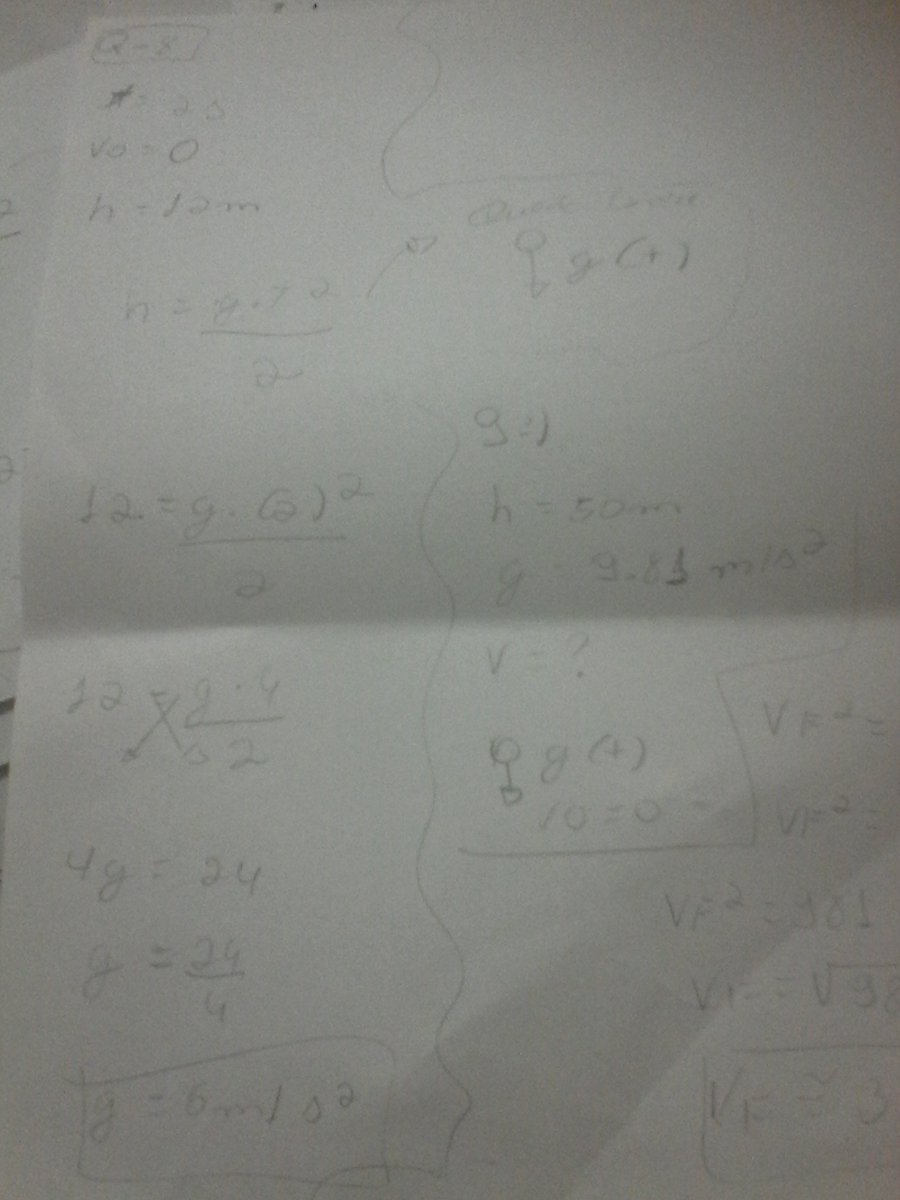 Q-8
t = 2s
v0 = 0
h = 12m
h = g.t²
2
12 = g. (2)²
2
12 = g.4
2
4g = 24
g = 24
4
g = 6m/s²
g (+)
9=)
h = 50m
g = 9.81 m/s²
V = ?
g (+)
VF² =
VF² =
VF² = 981
VF = √98
VF ≅ 3